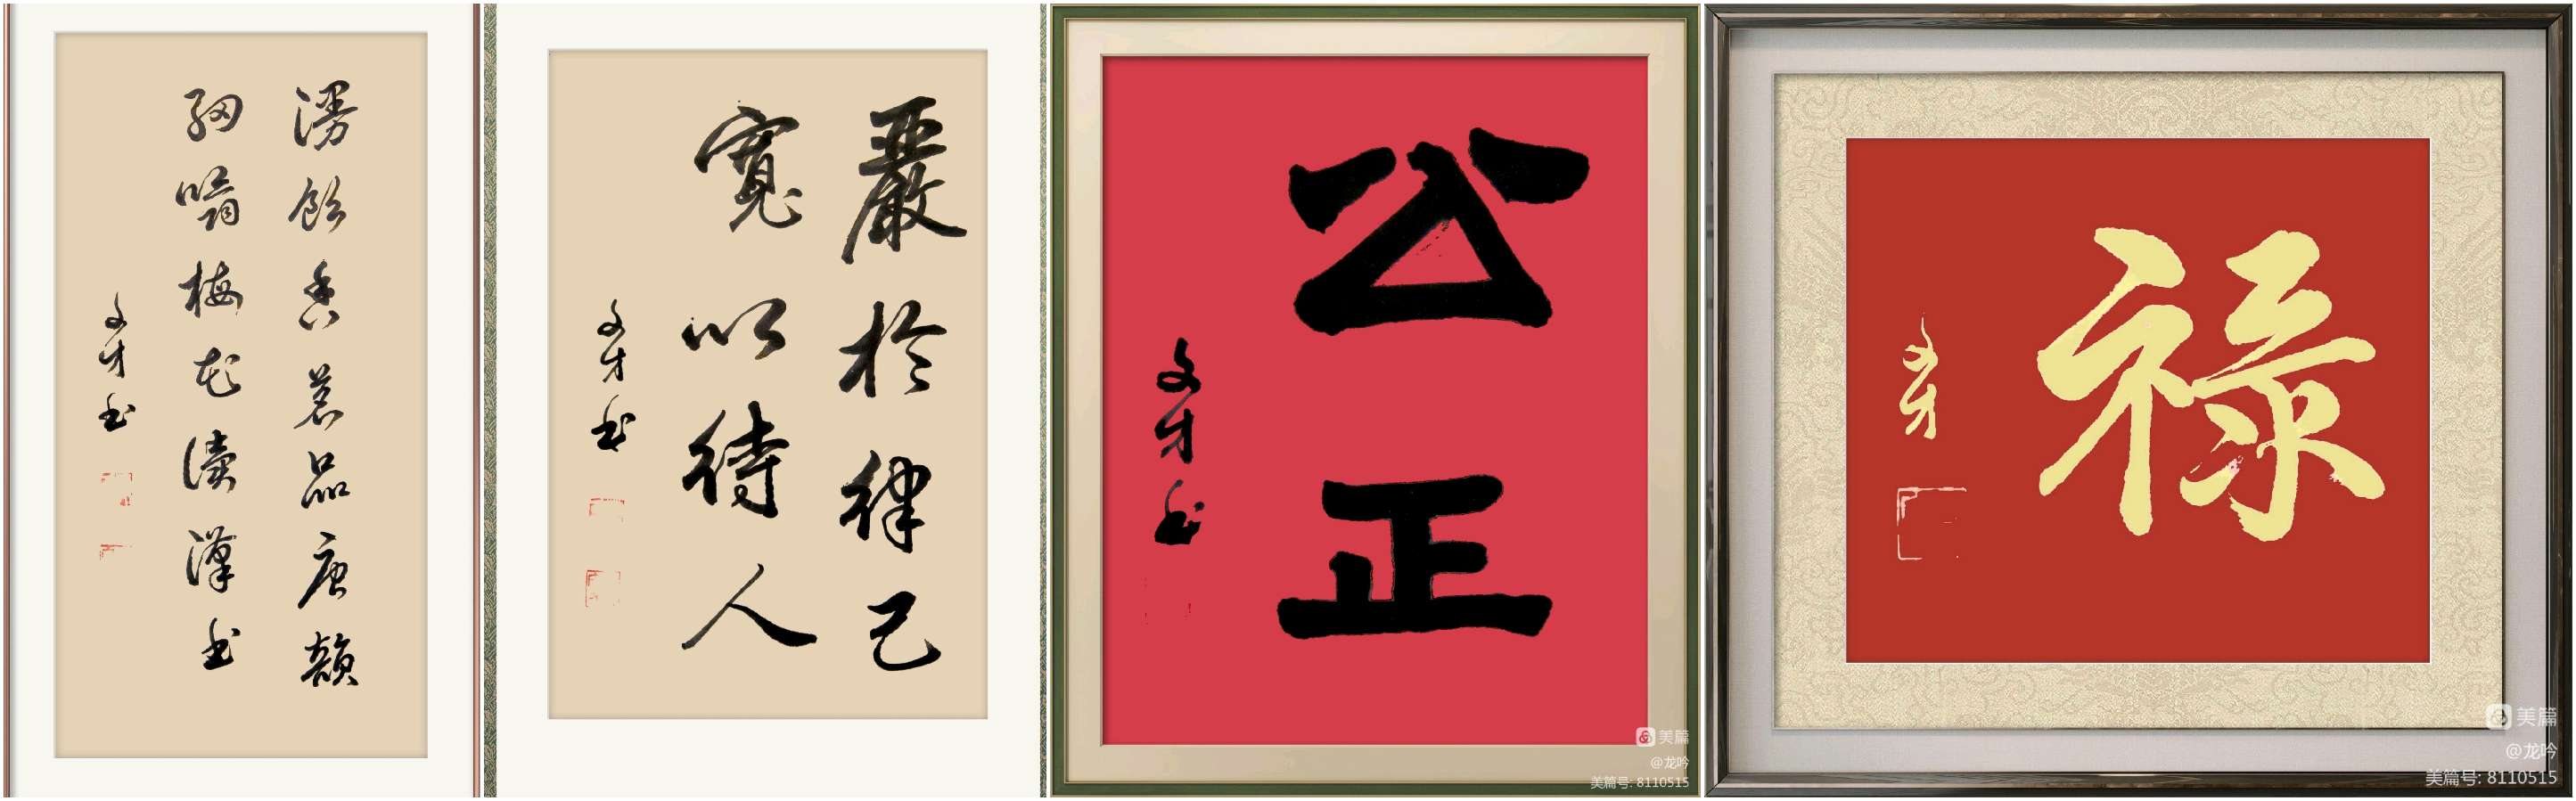 漫飲香茗品唐韻
細嚼梅花讀漢書
文才书
嚴於律己
寬以待人
文才书
公正
文才书
美篇
@龙吟
美篇号: 8110515
禄
文才
美篇
@龙吟
美篇号: 8110515